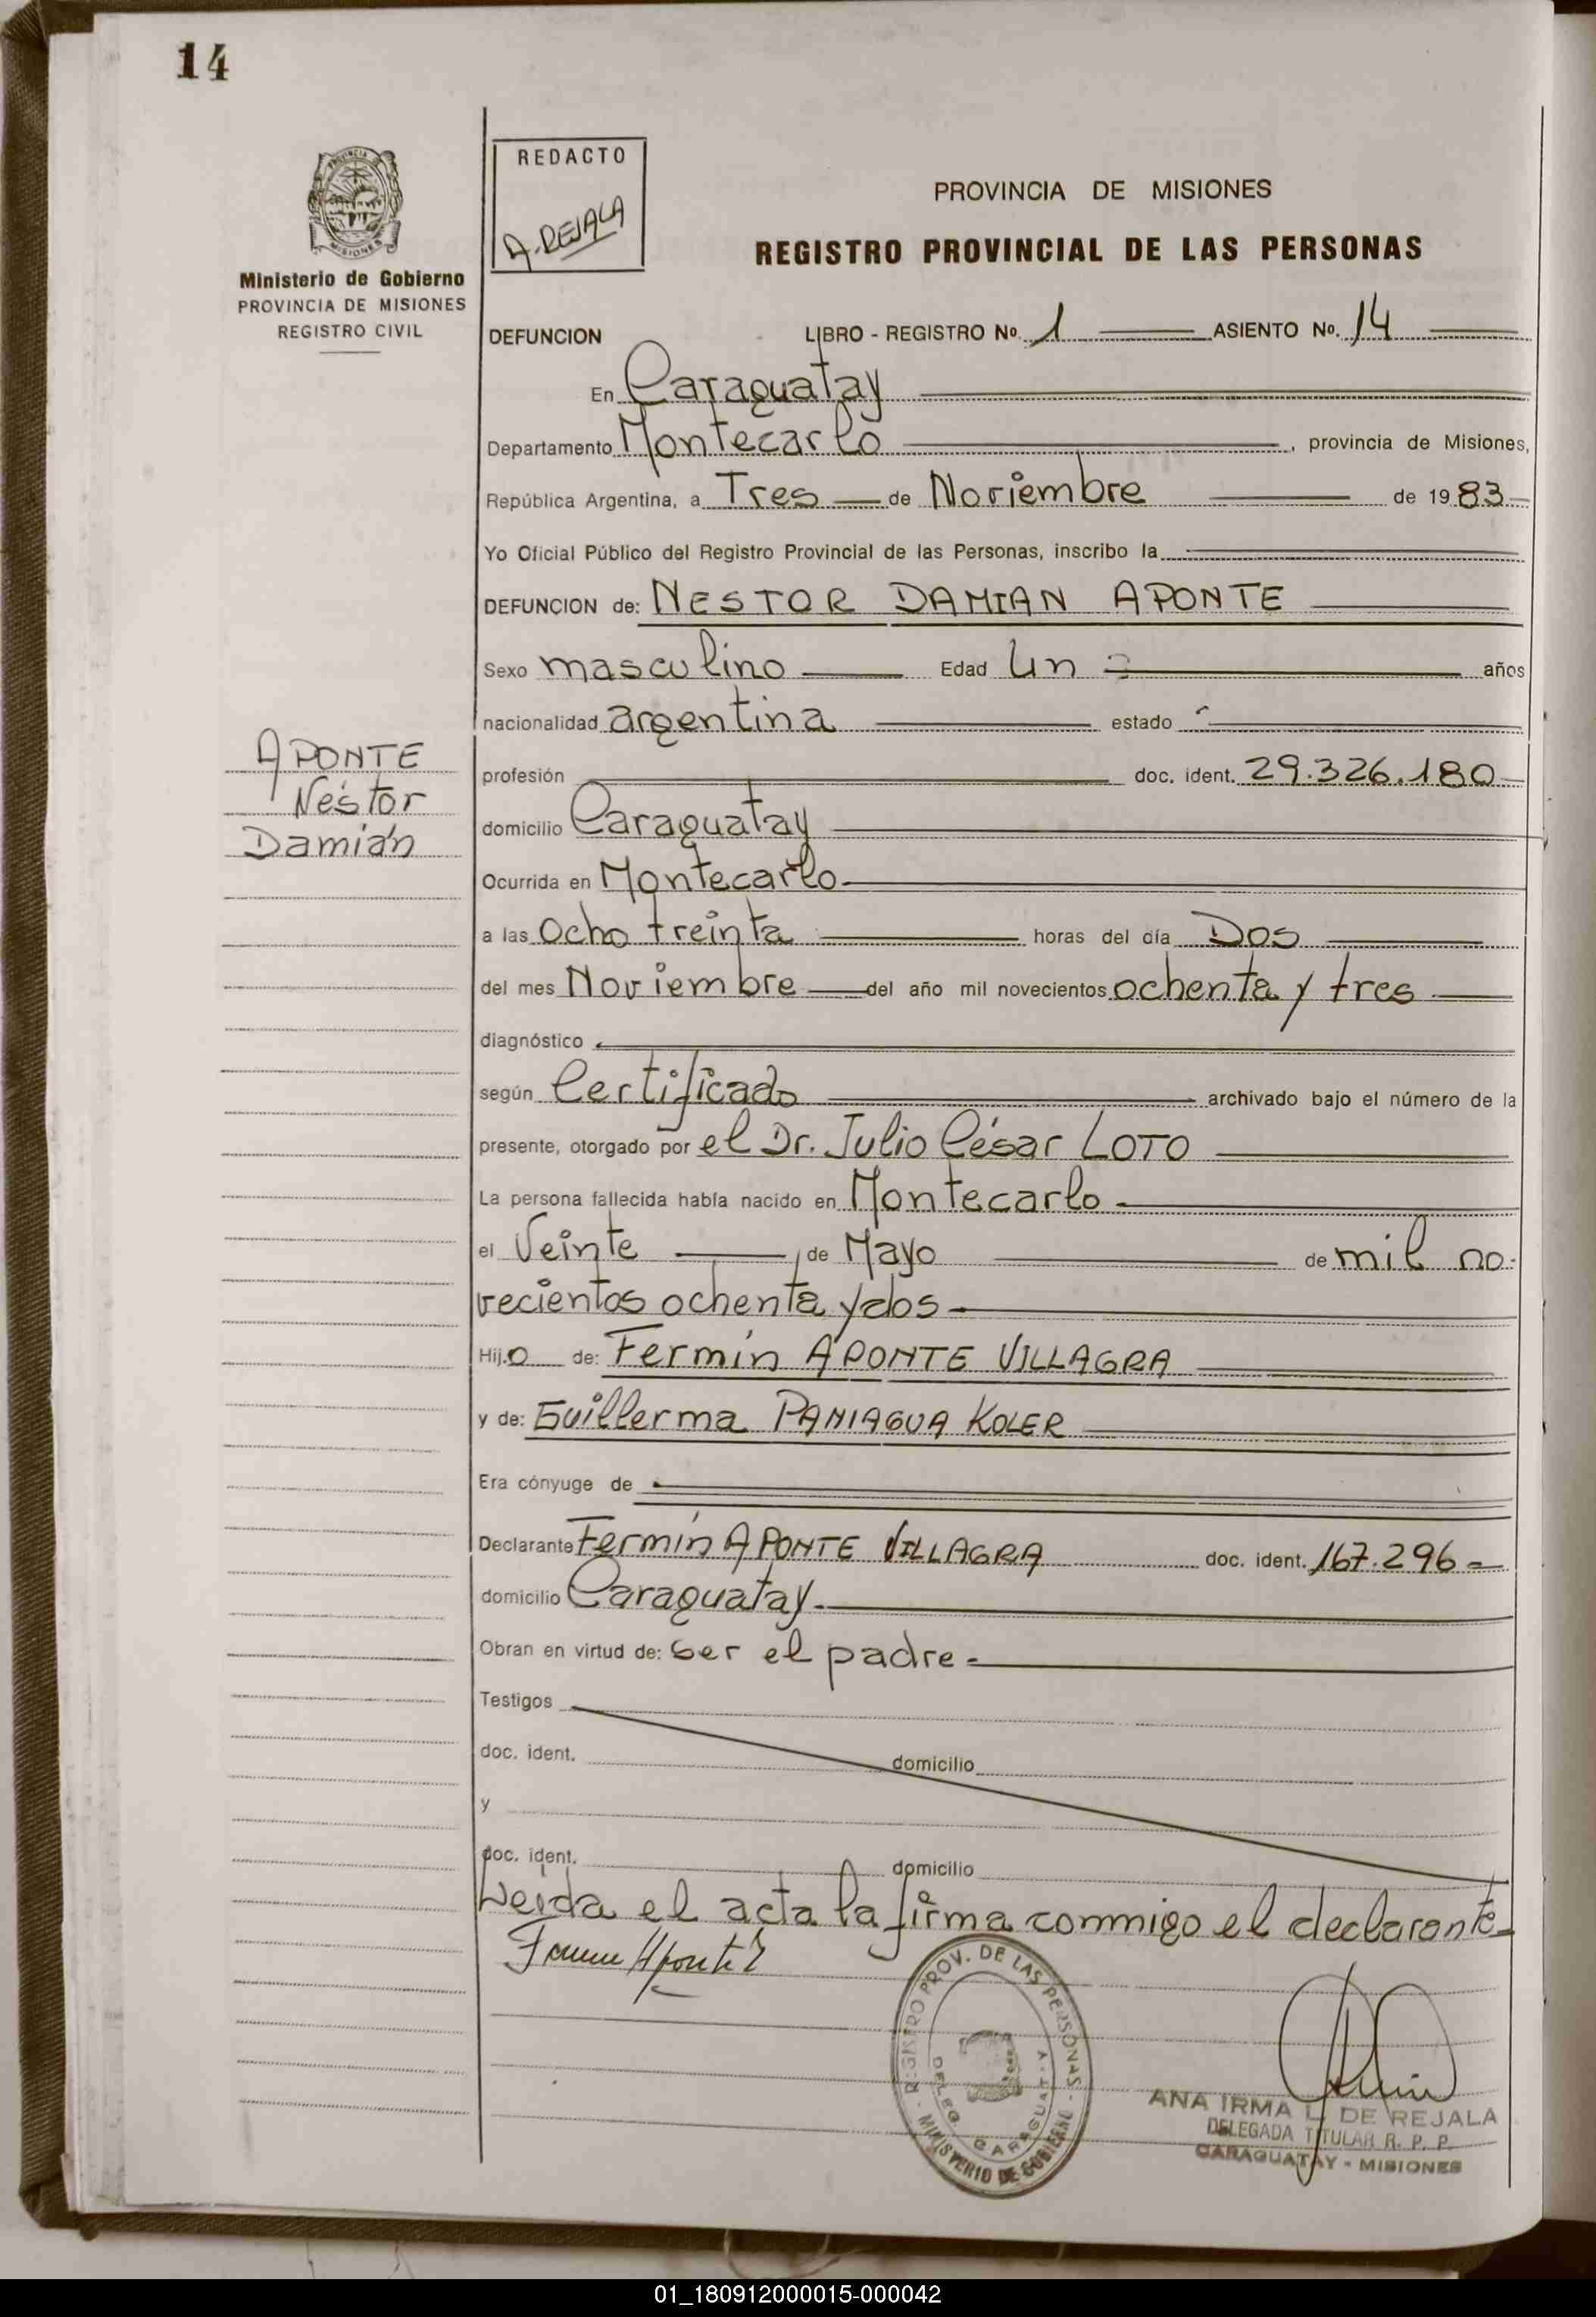 14
PROVINCIA DE MISIONES
Ministerio de Gobierno
PROVINCIA DE MISIONES
REGISTRO CIVIL
REDACTO
A. REJALA
PROVINCIA DE MISIONES
REGISTRO PROVINCIAL DE LAS PERSONAS
DEFUNCION LIBRO - REGISTRO Nº. 1 ASIENTO Nº. 14
En Caraguatay
Departamento Montecarlo , provincia de Misiones,
República Argentina, a Tres de Noviembre de 1983
Yo Oficial Público del Registro Provincial de las Personas, inscribo la
DEFUNCION de: NESTOR DAMIAN APONTE
Sexo masculino Edad Un años
nacionalidad argentina estado
APONTE
Néstor
Damián
profesión doc. ident. 29.326.180
domicilio Caraguatay
Ocurrida en Montecarlo
a las Ocho treinta horas del día Dos
del mes Noviembre del año mil novecientos ochenta y tres
diagnóstico
según Certificado archivado bajo el número de la
presente, otorgado por el Dr. Julio César LOTO
La persona fallecida había nacido en Montecarlo
el Veinte de Mayo de mil no-
vecientos ochenta y dos
Hijo de: Fermín APONTE VILLAGRA
y de: Guillerma PANIAGUA KOLER
Era cónyuge de
Declarante Fermín APONTE VILLAGRA doc. ident. 167.296
domicilio Caraguatay
Obran en virtud de: ser el padre
Testigos
doc. ident. domicilio
y
doc. ident. domicilio
Leída el acta la firma conmigo el declarante
REGISTRO PROV. DE LAS PERSONAS - MINISTERIO DE GOBIERNO
DELEG. CARAGUATAY
ANA IRMA L. DE REJALA
DELEGADA TITULAR R. P. P.
CARAGUATAY - MISIONES
01_180912000015-000042